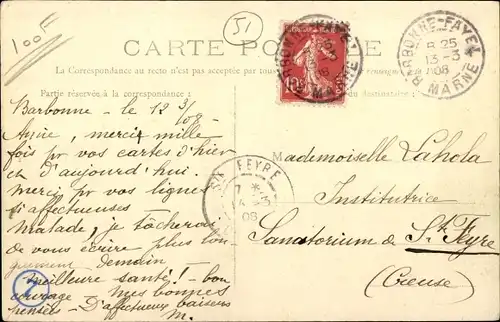 100F
51
CARTE POSTALE
La Correspondance au recto n'est pas acceptée par tous
Partie réservée à la correspondance :
du destinataire :
BARBONNE-FAYEL
MARNE
10
BARBONNE-FAYEL
8 25
13-3
08
MARNE
Barbonne - le 12 3/08
Amie, merci mille
fois pr vos cartes d'hier
et d'aujourd'hui.
Merci pr vos lignes
si affectueuses -
Malade, je tâcherai
de vous écrire plus lon-
guement demain
Meilleure santé! - bon
courage Mes bonnes
pensées - D'affectueux baisers
M.
STE FEYRE
08
Mademoiselle Lahola
Institutrice
Sanatorium de Ste Feyre
(Creuse)